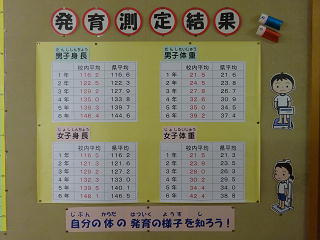 発育測定結果
だんししんちょう
男子身長
校内平均 県平均
1年 116.2 116.6
2年 122.5 122.3
3年 129.2 127.9
4年 135.0 133.8
5年 139.3 139.7
6年 148.4 144.6
だんしたいじゅう
男子体重
校内平均 県平均
1年 21.5 21.6
2年 24.5
3年 27.8
4年
5年
6年 39.2
じょししんちょう
女子身長
校内平均 県平均
1年 116.5 116.2
2年 121.3
3年
4年 132.5
5年 139.5 140.1
6年 148.1 146.5
じょしたいじゅう
女子体重
校内平均 県平均
1年 21.5 21.3
2年 23.9
3年 28.0
4年
5年
6年 42.4
じぶん からだ はついく ようす し
自分の体の発育の様子を知ろう！